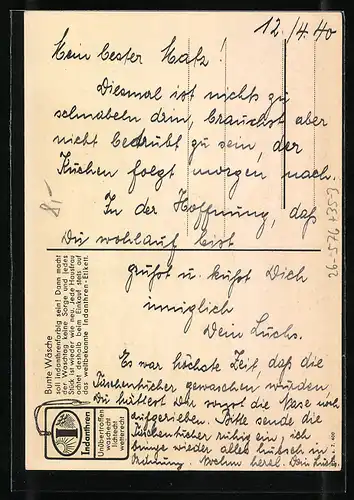 12./4.40
Mein bester Matz!
Diesmal ist nichts zu
schnabeln drin, brauchst aber
nicht betrübt zu sein, der
Kuchen folgt morgen nach.
In der Hoffnung, daß
Du wohlauf bist
grüßt u. küßt Dich
inniglich
Dein Luchs.
Es war höchste Zeit, daß die
Taschentücher gewaschen wurden,
Du hättest Dir sonst die Nase noch
aufgerieben. Bitte sende die
Taschentücher ruhig ein, ich
bringe wieder alles hübsch in
Ordnung. Nochm herzl. Dein Luchs.
8,-
Bunte Wäsche
soll indanthrenfarbig sein! Dann macht
der Waschtag keine Sorge und jedes
Stück ist wieder wie neu. Jede Hausfrau
achtet deshalb beim Einkauf stets auf
das weltbekannte Indanthren-Etikett.
I
Indanthren
Unübertroffen
waschecht
lichtecht
wetterecht